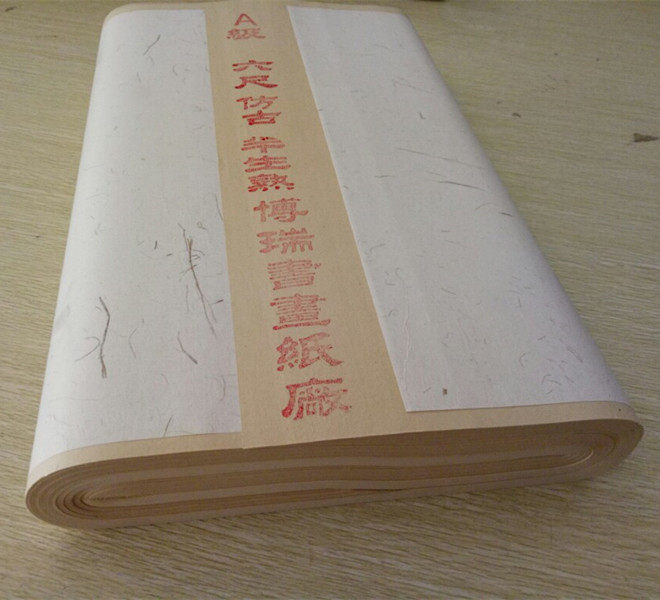 A級 六尺 仿古 半生熟 博瑞書畫紙廠